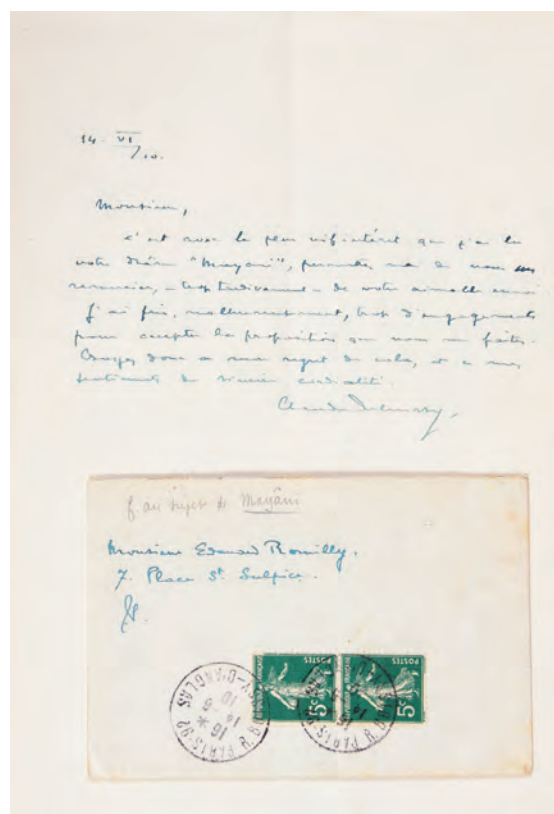 14 - VI
/10.
Monsieur,
c'est avec le plus vif intérêt que j'ai lu
votre drame "Mayani", permettez moi de vous en
remercier, – trop tardivement – de votre aimable envoi
J'ai pris, malheureusement, trop d'engagements
pour accepter la proposition que vous me faites.
Croyez donc à mon regret de cela, et à mes
sentiments de sincère cordialité.
Claude Debussy.
au sujet de Mayâni
Monsieur Edouard Romilly.
7. Place St Sulpice.
REPUBLIQUE FRANÇAISE
POSTES
5c
REPUBLIQUE FRANÇAISE
POSTES
5c
PARIS-92
16 *
14 -6
10
D'ANGLAS